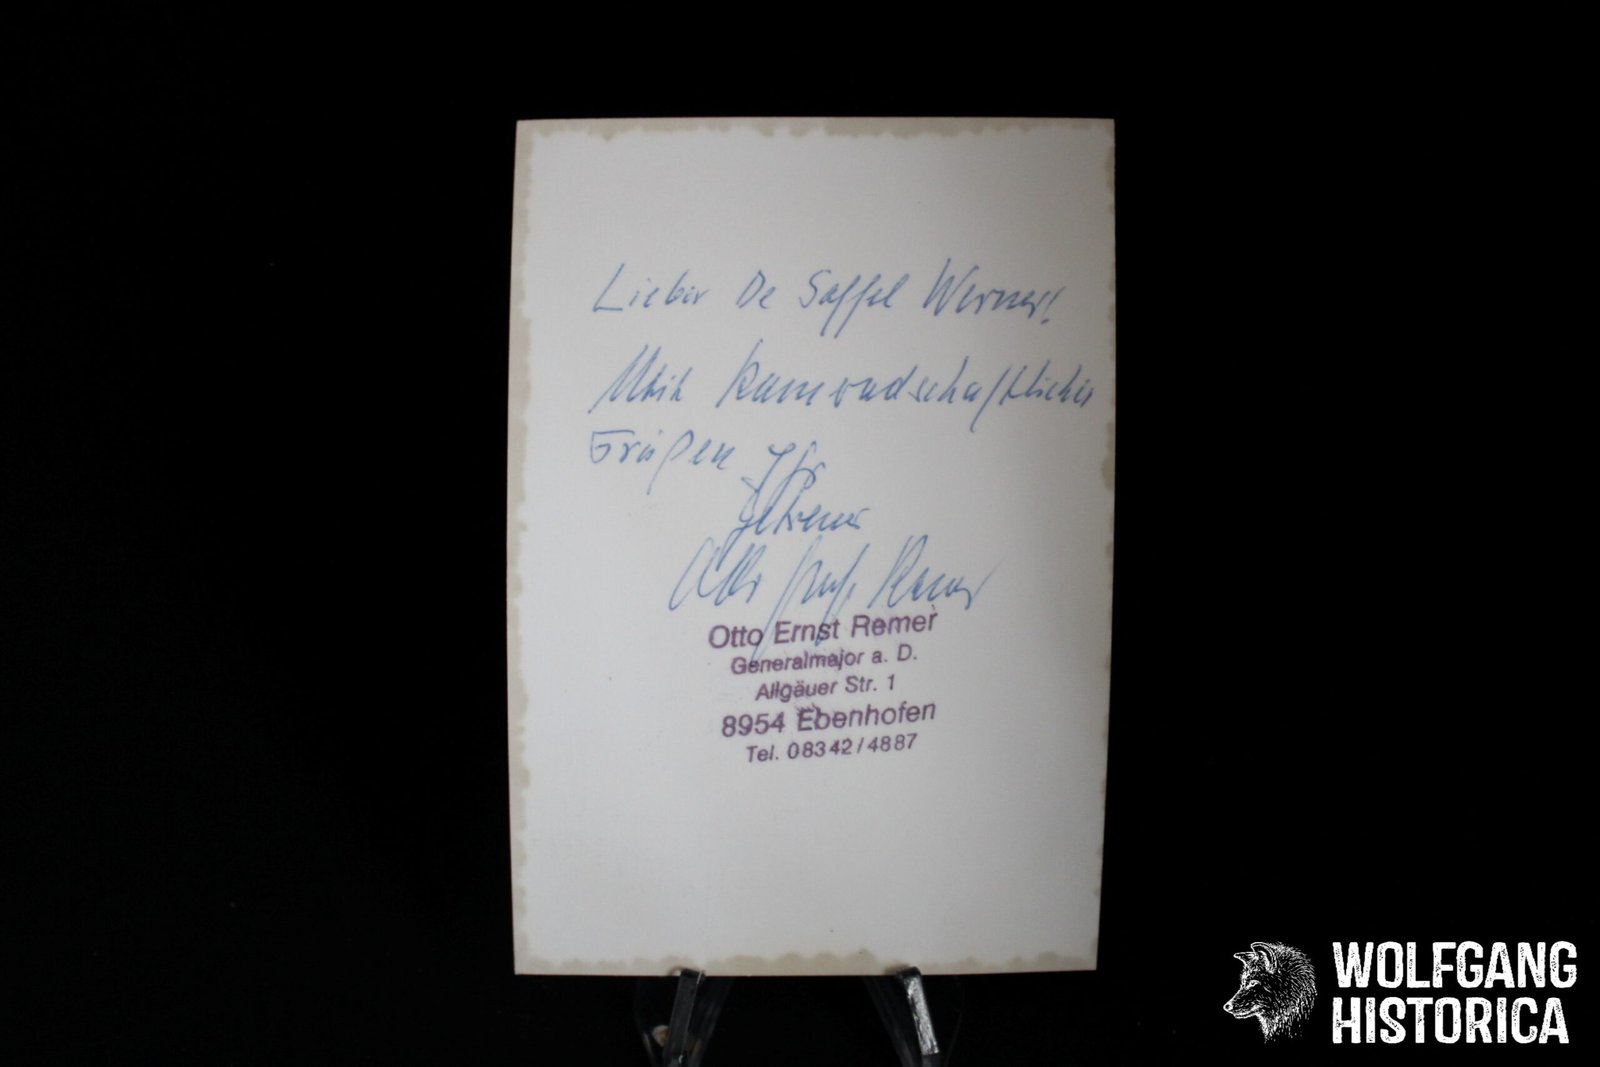 Lieber De Saffel Werner!
Mit Kameradschaftlichen
Grüßen Ihr
Otto Ernst Remer
Otto Ernst Remer
Generalmajor a. D.
Allgäuer Str. 1
8954 Ebenhofen
Tel. 08342/4887
WOLFGANG
HISTORICA